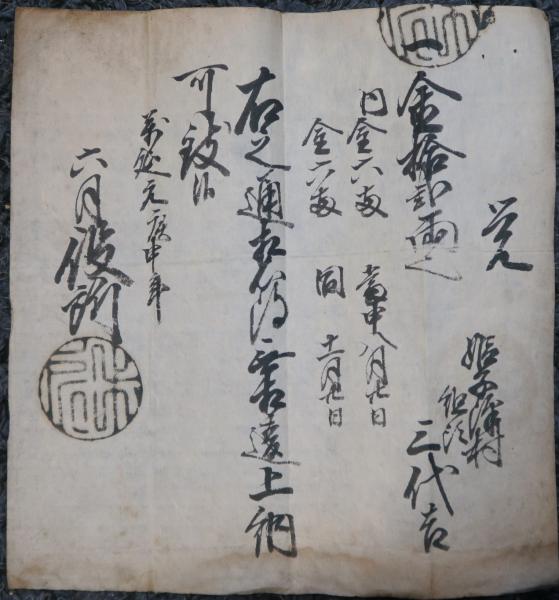 覚
村
組頭
三代吉
一金拾弐両也
内金六両 当申八月廿日
金六両 同 十一月廿日
右之通 無違上納
可致候
万延元庚申年
六月 役所